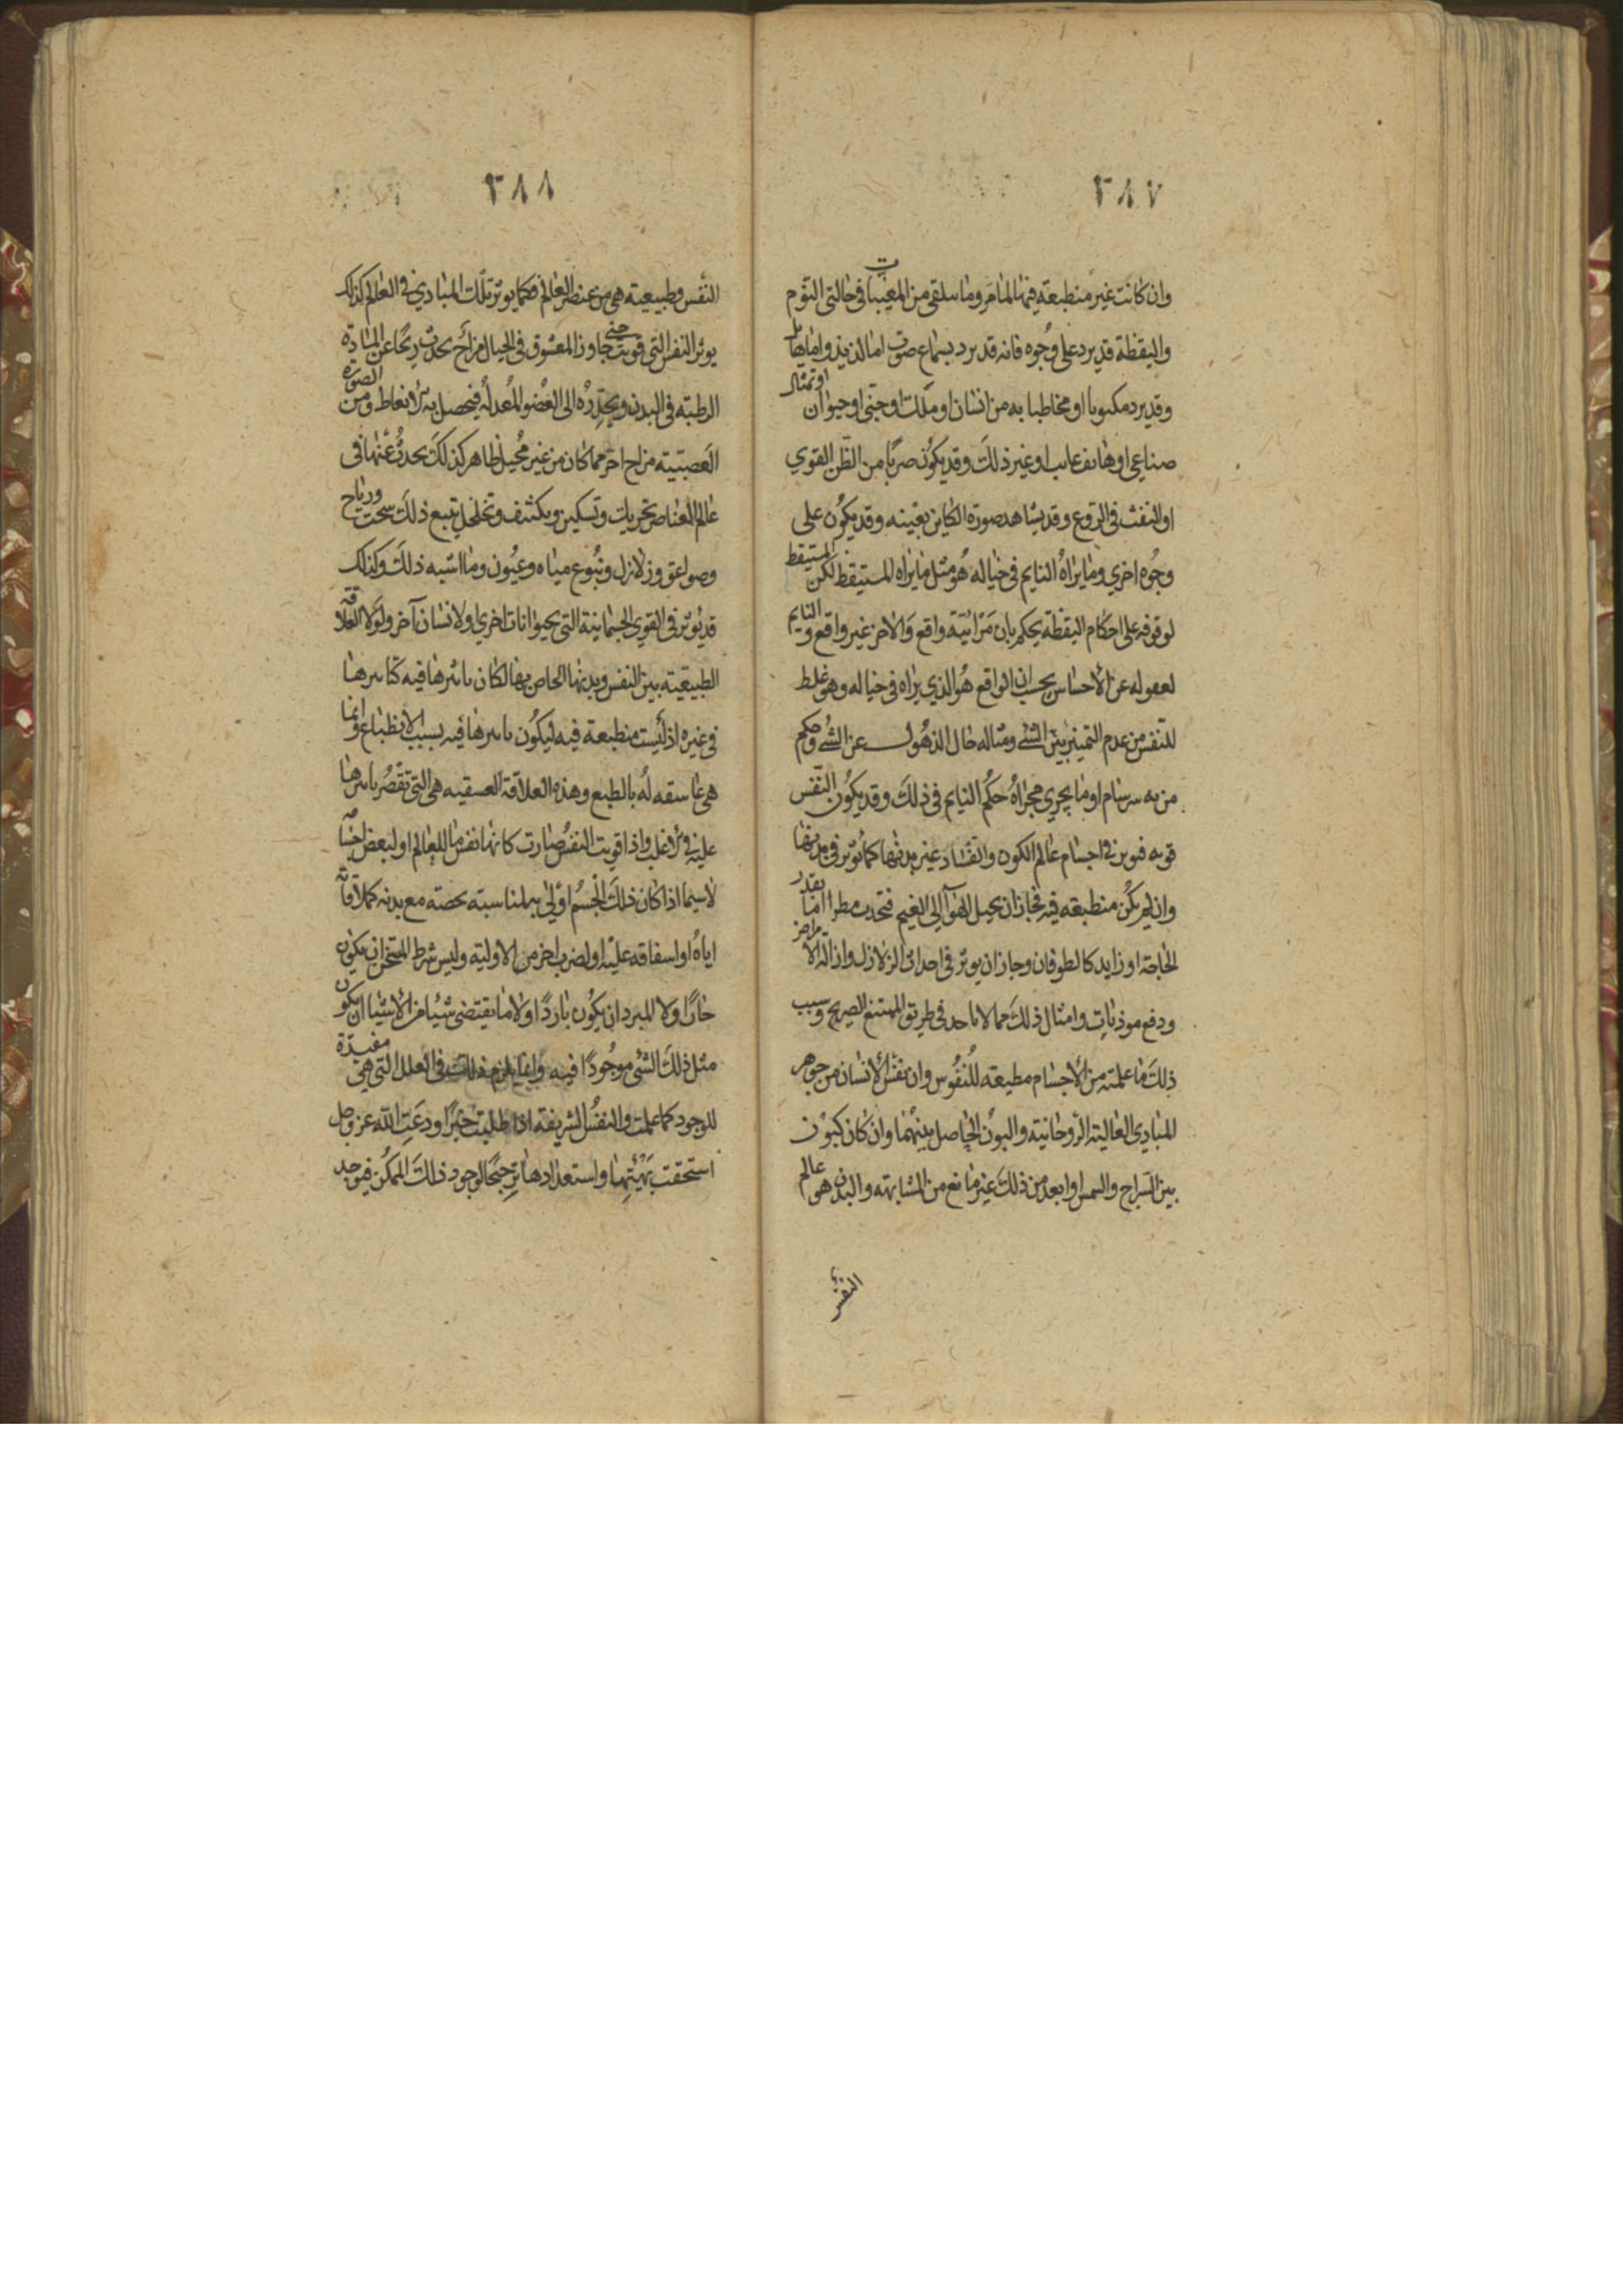 ٢٨٧
وان كانت غير منطبعة فيها لما مر وما يتلقى من المغيبات في حالتي النوم
واليقظة قد يرد على وجوه فانه قد يرد بسماع صوت اما لذيذ واما هايل
وقد يرد مكتوبا او مخاطبا به من انسان او ملك او جني او حيوان او تمثال
صناعي او هاتف غايب او غير ذلك وقد يكون ضربا من الظن القوي
او النفث في الروع وقد يشاهد صورة الكاين بعينه وقد يكون على
وجوه اخري وما يراه النايم في خياله هو مثل ما يراه المستيقظ لكن المستيقظ
لوقوفه على احكام اليقظة يحكم بان مرائيته واقع والاخر غير واقع والنايم
لغفوله عن الاحساس يحسب ان الواقع هو الذي يراه في خياله وهو غلط
للنفس من عدم التمييز بين الشئ ومثاله حال الذهول عن الشئ وحكم
من به سرسام او ما يجري مجراه حكم النايم في ذلك وقد يكون النفس
قوية فيوثر في اجسام عالم الكون والفساد غير بدنها كما يؤثر في بدنها
وان لم يكن منطبعة فيه فجاز ان يحيل الهوآ الى الغيم فتحدث مطرا اما بقدر
الحاجة او زايد كالطوفان وجاز ان يوثر في احداث الزلازل وازالة الامراض
ودفع موذيات وامثال ذلك مما لا ياخذ في طريق الممتنع الصريح وسبب
ذلك ما علمته من الاجسام مطيعة للنفوس وان نفس الانسان من جوهر
المبادي العالية الروحانية والبون الحاصل بينهما وان كان كبون
بين السراج والشمس او ابعد من ذلك غير مانع من المشابهة والبدن هو عالم
النفس
٢٨٨
النفس وطبيعته هي من عنصر العالم فكما يوثر تلك المبادي في العالم كذلك
يوثر النفس التي قويت حتى جاوز المعشوق في الخيال مزاج يحدث ريحا عن المادة
الرطبة في البدن ويحدره الى العضو المعد له فيحصل به الانعاظ ومن الصورة
الغضبية مزاج اخر مما كان من غير محيل ظاهر كذلك يحدث عنها في
عالم العناصر تحريك وتسكين وتكثف وتخلخل يتبع ذلك سحب ورياح
وصواعق وزلازل ونبوع مياه وعيون وما اشبه ذلك وكذلك
قد يؤثر في القوي الجسمانية التي بحيوانات اخري او لانسان آخر ولولا العلاقة
الطبيعية بين النفس وبدنها الخاص بها لكان تاثيرها فيه كتاثيرها
في غيره اذ ليست منطبعة فيه ليكون تاثيرها فيه بسبب الانطباع وانما
هي عاشقة له بالطبع وهذه العلاقة العشقية هي التي تقصر تاثيرها
عليه في الاغلب واذا قويت النفس صارت كانها نفس ما للعالم او لبعض اجسامه
لاسيما اذا كان ذلك الجسم اولى به لمناسبة تخصه مع بدنه كملاقاته
اياه او اشفاقه عليه او لضرب اخر من الاولية وليس شرط المسخن ان يكون
حارا ولا المبرد ان يكون باردا ولا ما يقتضي شيئا من الاشيا ان يكون
مثل ذلك الشئ موجودا فيه وانما يلزم ذلك في العلل التي هي مفيدة
للوجود كما علمت والنفس الشريفة اذا طلبت خيرا ودعت الله عز وجل
استحقت بهيئتها واستعدادها ترجيحا لوجود ذلك الممكن فيوجد